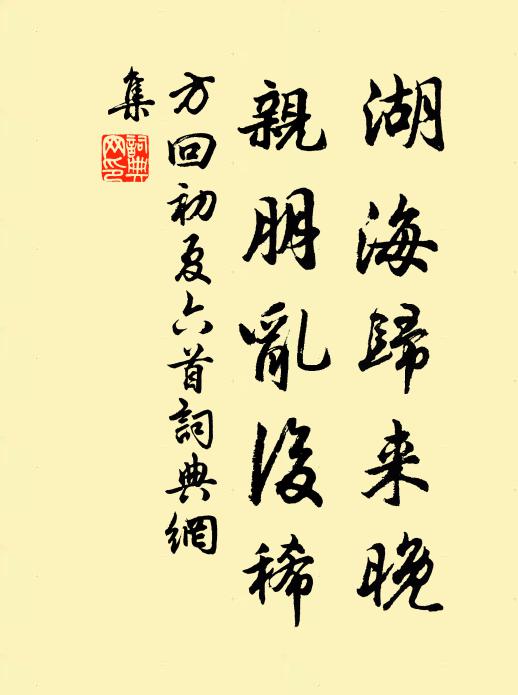 湖海歸来晚
親朋亂後稀
方回初夏六首詞典網
集
詞典網印